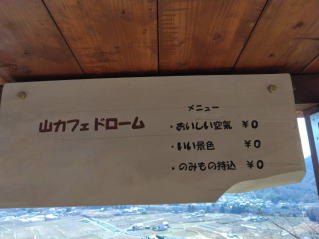 山カフェ ドローム
メニュー
・おいしい空気 ¥0
・いい景色 ¥0
・のみもの持込 ¥0